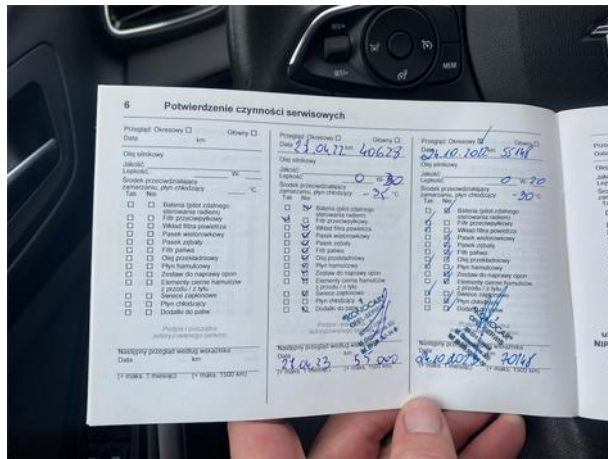 MEM
6 Potwierdzenie czynności serwisowych
Przegląd: Okresowy Główny
Data km
Olej silnikowy
Jakość:
Lepkość: W-
Środek przeciwdziałający
zamarzaniu, płyn chłodzący °C
Tak Nie
Bateria (pilot zdalnego
sterowania radiem)
Filtr przeciwpyłkowy
Wkład filtra powietrza
Pasek wielorowkowy
Pasek zębaty
Filtr paliwa
Olej przekładniowy
Płyn hamulcowy
Zestaw do naprawy opon
Elementy cierne hamulców
z przodu / z tyłu
Świece zapłonowe
Płyn chłodzący
Dodatki do paliw
Podpis i pieczątka
autoryzowanego serwisu
Następny przegląd według wskaźnika
Data km
(+ maks. 1 miesiąc) (+ maks. 1500 km)
Przegląd: Okresowy Główny
Data 04.22 km 40623
Olej silnikowy
Jakość:
Lepkość: 0 W- 30
Środek przeciwdziałający
zamarzaniu, płyn chłodzący °C
Tak Nie
Bateria (pilot zdalnego
sterowania radiem)
Filtr przeciwpyłkowy
Wkład filtra powietrza
Pasek wielorowkowy
Pasek zębaty
Filtr paliwa
Olej przekładniowy
Płyn hamulcowy
Zestaw do naprawy opon
Elementy cierne hamulców
z przodu / z tyłu
Świece zapłonowe
Płyn chłodzący
Dodatki do paliw
Podpis i pieczątka
autoryzowanego serwisu
Następny przegląd według wskaźnika
Data km
04.23
(+ maks. 1 miesiąc) (+ maks. 1500 km)
Przegląd: Okresowy Główny
Data 24.10.2022 km 55148
Olej silnikowy
Jakość:
Lepkość: 0 W- 20
Środek przeciwdziałający
zamarzaniu, płyn chłodzący -30 °C
Tak Nie
Bateria (pilot zdalnego
sterowania radiem)
Filtr przeciwpyłkowy
Wkład filtra powietrza
Pasek wielorowkowy
Pasek zębaty
Filtr paliwa
Olej przekładniowy
Płyn hamulcowy
Zestaw do naprawy opon
Elementy cierne hamulców
z przodu / z tyłu
Świece zapłonowe
Płyn chłodzący
Dodatki do paliw
Następny przegląd według
Data
24.10.2023 70148
(+ maks. 1 miesiąc) (+ maks. 1500 km)
NIP